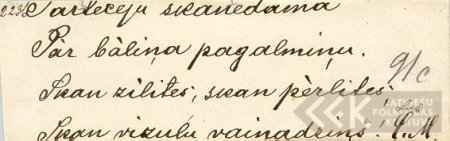 223 Pārtecēju skanēdama
Pār bāliņa pagalmiņu.
91c
Skan zīlites, skan pērlites,
Skan vizuļu vainadziņš. L.M.
LATVIEŠU
FOLKLORAS
KRĀTUVE